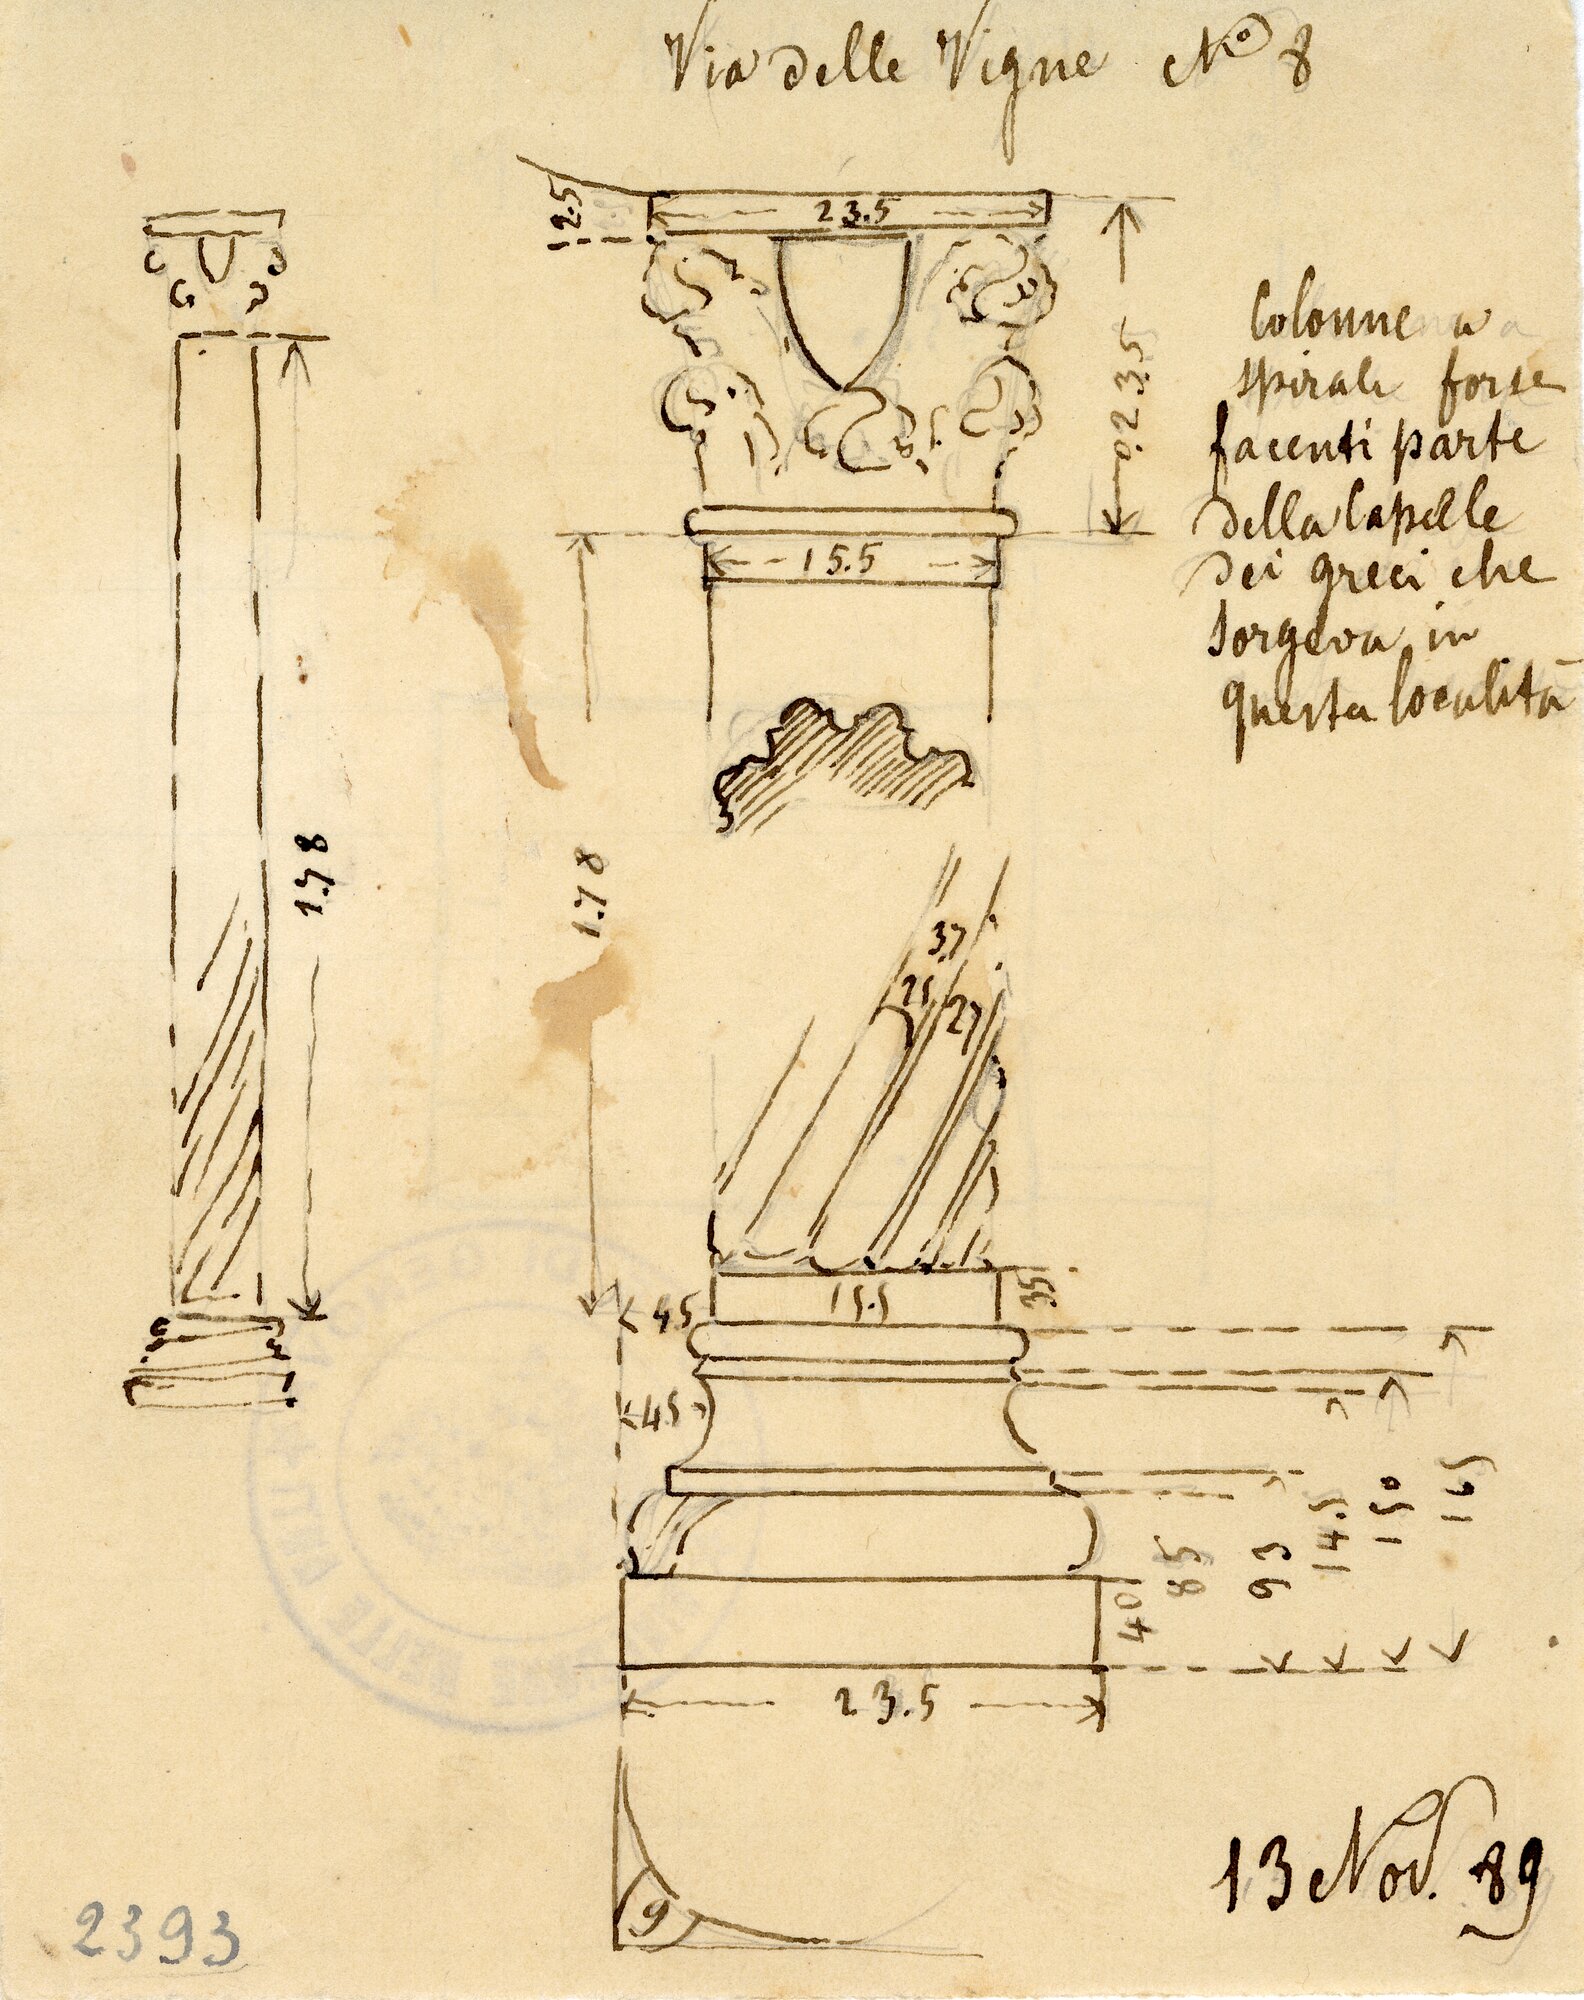 Via delle Vigne No 8
12.5
23.5
0.23.5
Colonne a
spirale forse
facenti parte
della Capelle
dei greci che
sorgeva in
questa località
15.5
1.78
1.78
37
25
27
15.5
35
45
45
40
85
93
14.5
150
165
23.5
9
13 Nov. 89
2393